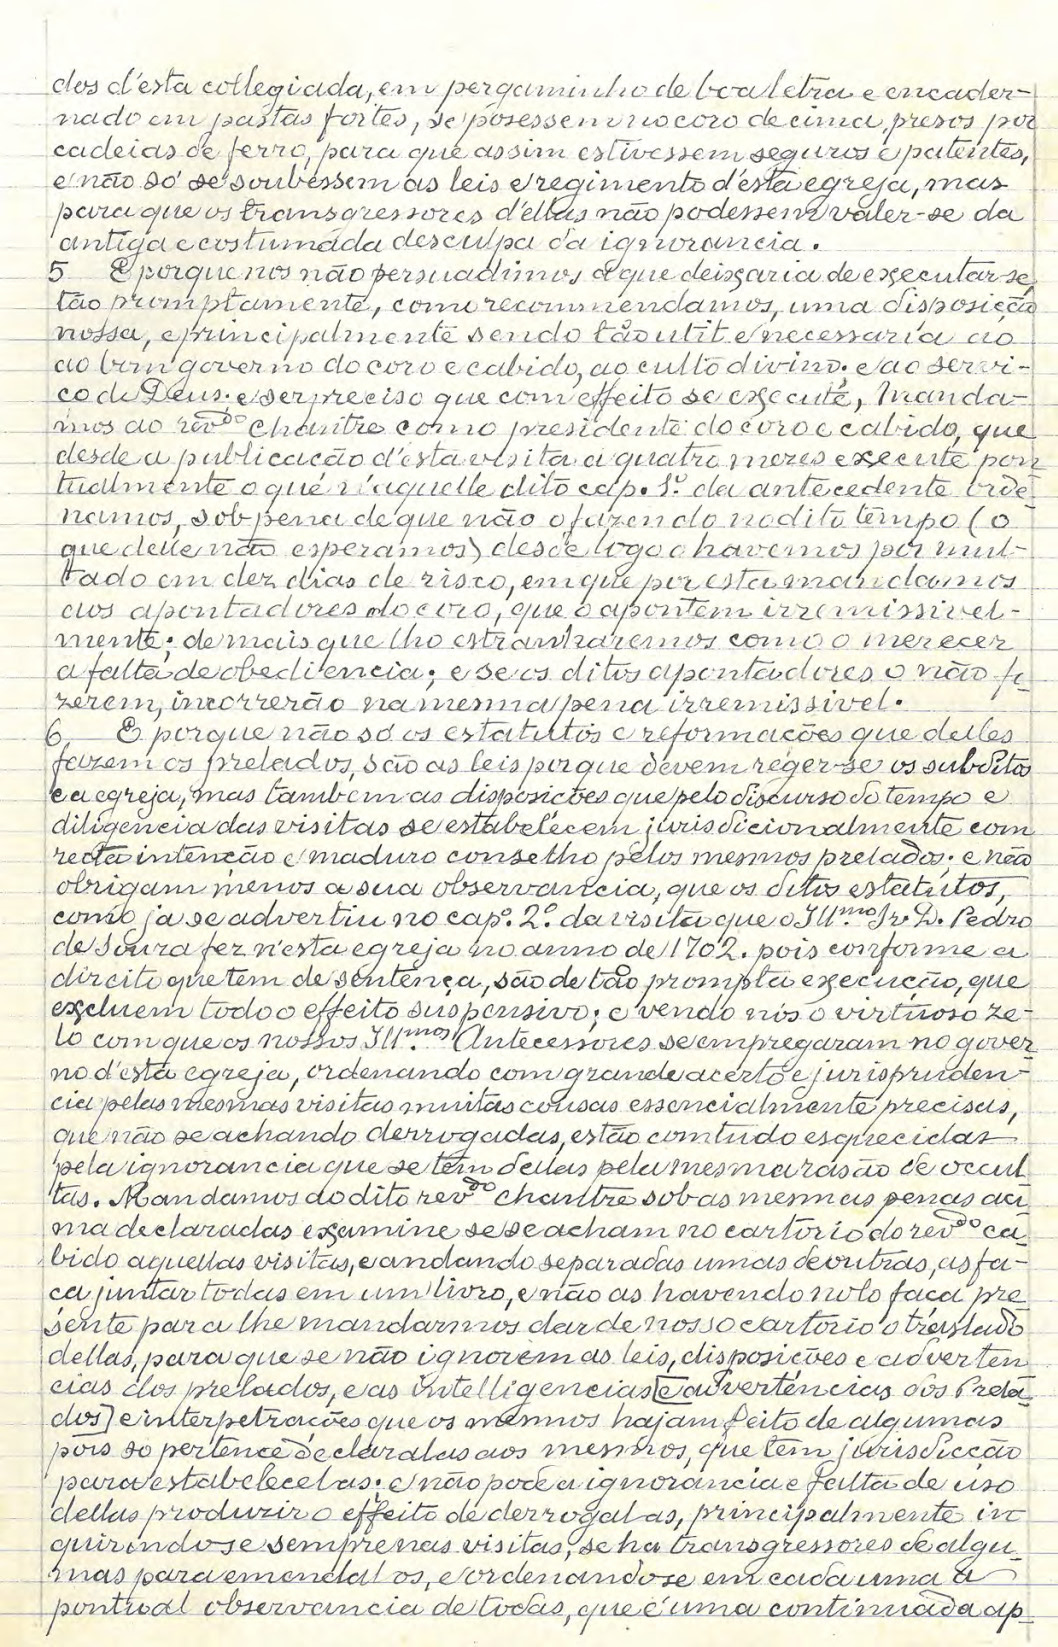 dos d'esta collegiada, em pergaminho de boa letra e encader-
nado em pastas fortes, se posessem no coro de cima, presos por
cadeias de ferro, para que assim estivessem seguros e patentes,
e não só se soubessem as leis e regimento d'esta egreja, mas
para que os transgressores d'ellas não podessem valer-se da
antiga e costumada desculpa da ignorancia.
5 E porque nos não persuadimos a que deixaria de executar-se
tão promptamente, como recommendamos, uma disposição
nossa, e principalmente sendo tão util e necessaria ao
ao bom governo do coro e cabido, ao culto divino. e ao servi-
ço de Deus: e ser preciso que com effeito se execute, Manda-
mos ao revdo chantre como presidente do coro e cabido, que
desde a publicacão d'esta visita a quatro mezes execute pon
tualmente o que n'aquelle dito cap. 1º da antecedente orde
namos, sob pena de que não o fazendo no dito tempo (o
que delle não esperamos) desde logo o havemos por mul-
tado em dez dias de risco, em que por esta mandamos
aos apontadores do coro, que o apontem irremissivel-
mente; de mais que lho estranharemos como o merecer
a falta de obediencia; e se os ditos apontadores o não fi-
zerem, incorrerão na mesma pena irremissivel.
6 E porque não só os estatutos e reformações que delles
fazem os prelados, são as leis por que devem reger-se os subditos
e a egreja, mas tambem as disposicões que pelo discurso do tempo e
diligencia das visitas se estabelecem jurisdicionalmente com
recta intenção e maduro conselho pelos mesmos prelados; e não
obrigam menos a sua observancia, que os ditos estatutos,
como ja se advertiu no capº. 2º. da visita que o Illmo Sr. D. Pedro
de Souza fez n'esta egreja no anno de 1702. pois conforme a
direito que tem de sentença, são de tão prompta execucção, que
excluem todo o effeito suspensivo; e vendo nós o virtuoso ze-
lo com que os nossos Illmos Antecessores se empregaram no gover
no d'esta egreja, ordenando com grande acerto e jurispruden-
cia pelas mesmas visitas muitas cousas essencialmente precisas,
que não se achando derrogadas, estão comtudo esquecidas
pela ignorancia que se têm dellas pela mesma rasão de occul
tas. Mandamos ao dito revdo chantre sob as mesmas penas aci
ma declaradas examine se se acham no cartorio do revdo ca-
bido aquellas visitas, e andando separadas umas de outras, as fa-
ca juntar todas em um livro, e não as havendo nolo faca pre
sente para lhe mandarmos dar de nosso cartorio o treslado
dellas, para que se não ignorem as leis, disposicões e adverten
cias dos prelados, e as intelligencias [e advertencias dos Prela-
dos] e interpetrações que os mesmos hajam feito de algumas
pois so pertence declaralas aos mesmos, que têm jurisdicção
para estabelecelas; e não pode a ignorancia e falta de uso
dellas produzir o effeito de derrogalas, principalmente in
quirindose sempre nas visitas, se ha transgressores de algu-
mas para emendal os, e ordenandose em cada uma a
pontual observancia de todas, que é uma continuada ap-